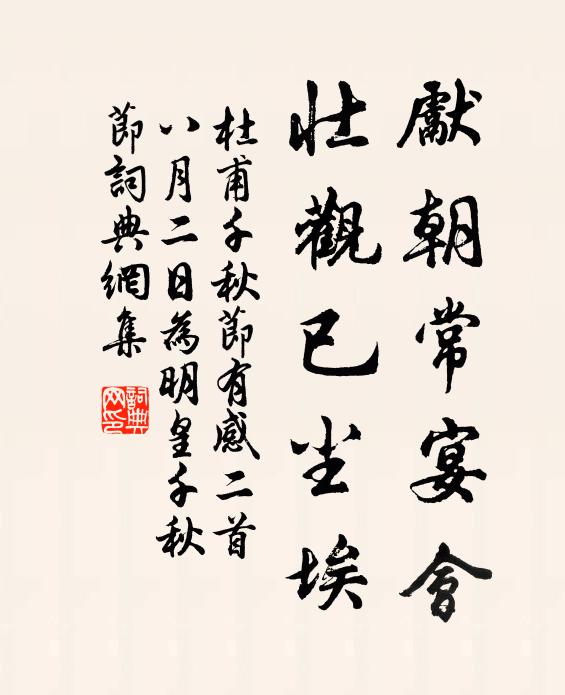 獻朝常宴會
壯觀已尘埃
杜甫千秋節有感二首
八月二日為明皇千秋
節詞典網集
詞典
网印